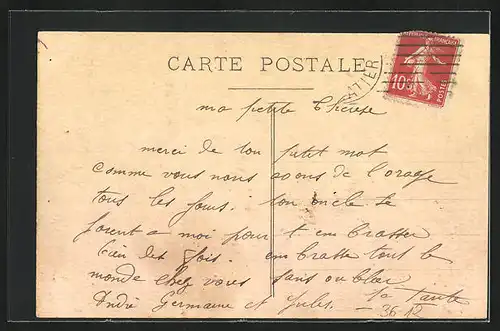 CARTE POSTALE
RÉPUBLIQUE FRANÇAISE
10c
POSTES
ma petite Thérèse
merci de ton petit mot
comme vous nous avons de l'orage
tous les jours. ton oncle se
joient a moi pour t'embrasser
bien des fois. embrasse tout le
monde chez vous sans oublier
André Germaine et Jules. ta Tante
3612